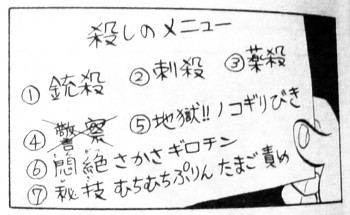 殺しのメニュー
① 銃殺 ② 刺殺 ③ 薬殺
④ 警察 ⑤ 地獄!!ノコギリびき
⑥ 悶絶さかさギロチン
⑦ 秘技むちむちぷりんたまご責め